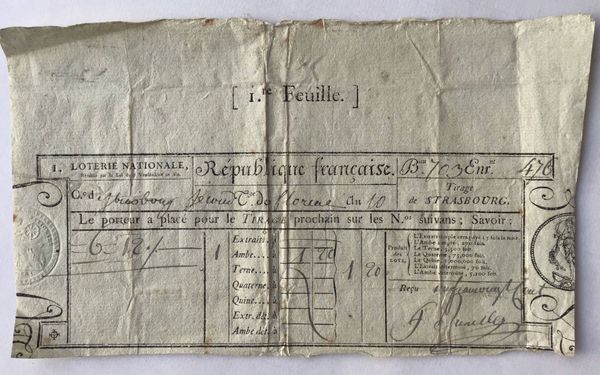 [ 1.re Feuille. ]
1. LOTERIE NATIONALE,
République française.
Bau 703 Enr.t 476
Rétablie par la Loi du 9 Vendémiaire an VI.
C.e d Strasbourg Tir.e de floréal An 10
Tirage
de STRASBOURG.
Le porteur a placé pour le TIRAGE prochain sur les N.os suivans ; Savoir :
6 12
1
Extraits à
Ambe à 1 20
Terne à
Quaterne à
Quine à
Extr. dét. à
Ambe dét. à
1 20
Produit
des
LOTS,
L'Extrait simple sera payé 15 fois la mise,
L'Ambe simple, 270 fois.
Le Terne, 5,500 fois.
Le Quaterne, 75,000 fois.
Le Quine, 1,000,000 fois.
L'Extrait déterminé, 70 fois.
L'Ambe déterminé, 5,100 fois.
Reçu un franc vingt Cent